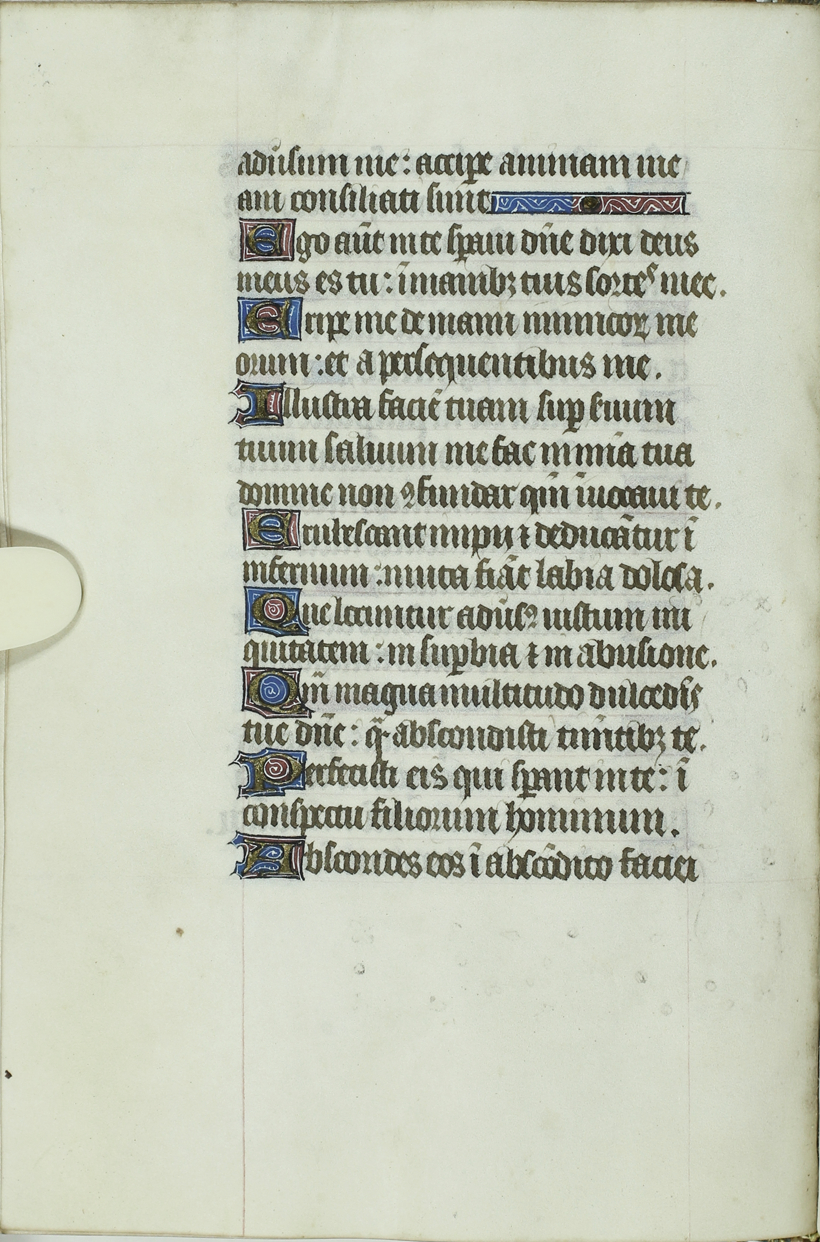 adūsum me: accipe animam me
am consiliati sunt
Ego aūt in te sꝑaui dn̄e dixi deus
meus es tu: ī manibꝫ tuis sortes mee.
Eripe me de manu inimicoꝝ me
orum: et a persequentibus me.
Illustra faciē tuam suꝑ seruum
tuum saluum me fac in mīa tua
domine non ꝯfundar qm̄ īuocaui te.
Erubescant impii ⁊ deducātur ī
infernum: muta fiāt labia dolosa.
Que locuntur adūsꝰ iustum ini
quitatem: in suꝑbia ⁊ in abusione.
Qm̄ magna multitudo dulcedīs
tue dn̄e: q̄ abscondisti tim̄tibꝫ te.
Perfecisti eis qui sꝑant in te: ī
conspectu filiorum hominum.
Abscondes eos ī abscōdito faciei